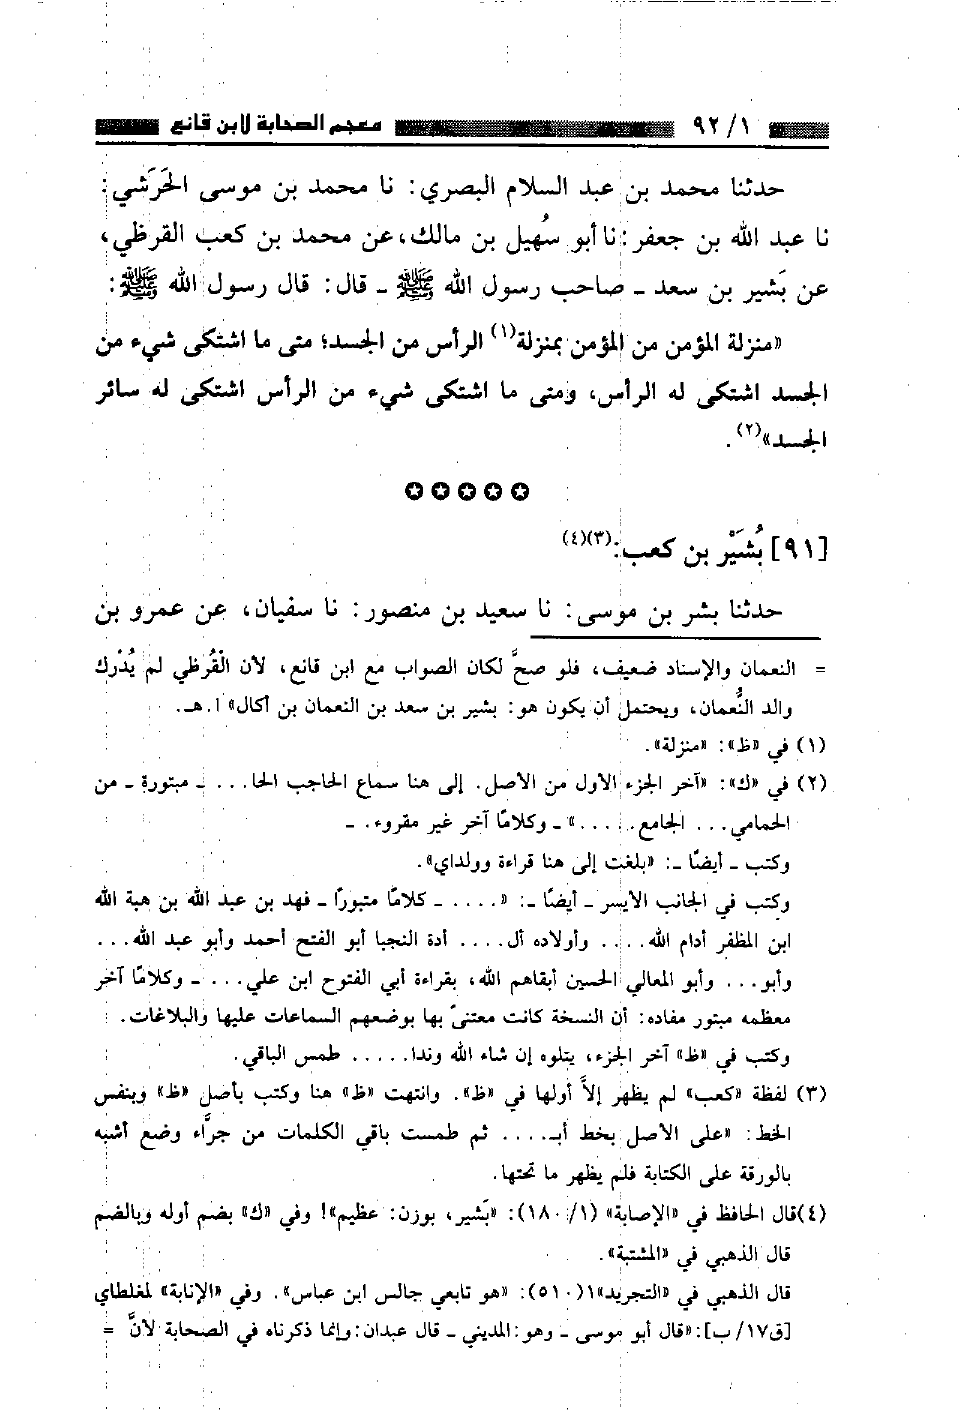 ٩٢/١ معجم الصحابة لابن قانع
حدثنا محمد بن عبد السلام البصري: نا محمد بن موسى الحَرَشي:
نا عبد الله بن جعفر: نا أبو سُهيل بن مالك، عن محمد بن كعب القرظي،
عن بَشير بن سعد ـ صاحب رسول الله ﷺ ـ قال: قال رسول الله ﷺ:
«منزلة المؤمن من المؤمن بمنزلة(١) الرأس من الجسد؛ متى ما اشتكى شيء من
الجسد اشتكى له الرأس، ومتى ما اشتكى شيء من الرأس اشتكى له سائر
الجسد»(٢).
✪✪✪✪✪
[٩١] بُشَيْر بن كعب:(٣)(٤)
حدثنا بشر بن موسى: نا سعيد بن منصور: نا سفيان، عن عمرو بن
= النعمان والإسناد ضعيف، فلو صحَّ لكان الصواب مع ابن قانع، لأن الْقُرظي لم يُدْرك
والد النُّعمان، ويحتمل أن يكون هو: بشير بن سعد بن النعمان بن أكال» ا.هـ.
(١) في «ظ»: «منزلة».
(٢) في «ك»: «آخر الجزء الأول من الأصل. إلى هنا سماع الحاجب الحا... ـ مبتورة ـ من
الحمامي... الجامع......» ـ وكلامًا آخر غير مقروء. ـ
وكتب ـ أيضًا ـ: «بلغت إلى هنا قراءة وولداي».
وكتب في الجانب الأيسر ـ أيضًا ـ: «.... ـ كلامًا متبورًا ـ فهد بن عبد الله بن هبة الله
ابن المظفر أدام الله.... وأولاده أل.... أدة النجبا أبو الفتح أحمد وأبو عبد الله...
وأبو... وأبو المعالي الحسين أبقاهم الله، بقراءة أبي الفتوح ابن علي... ـ وكلامًا آخر
معظمه مبتور مفاده: أن النسخة كانت معتنىً بها بوضعهم السماعات عليها والبلاغات.
وكتب في «ظ» آخر الجزء، يتلوه إن شاء الله وندا..... طمس الباقي.
(٣) لفظة «كعب» لم يظهر إلاَّ أولها في «ظ». وانتهت «ظ» هنا وكتب بأصل «ظ» وبنفس
الخط: «على الأصل بخط أبـ.... ثم طمست باقي الكلمات من جرَّاء وضع أشبه
بالورقة على الكتابة فلم يظهر ما تحتها.
(٤) قال الحافظ في «الإصابة» (١٨٠/١): «بَشير، بوزن: عظيم»! وفي «ك» بضم أوله وبالضم
قال الذهبي في «المشتبة».
قال الذهبي في «التجريد»١(٥١٠): «هو تابعي جالس ابن عباس». وفي «الإنابة» لمغلطاي
[ق١٧/ب]: «قال أبو موسى ـ وهو: المديني ـ قال عبدان: وإنما ذكرناه في الصحابة لأنَّ =